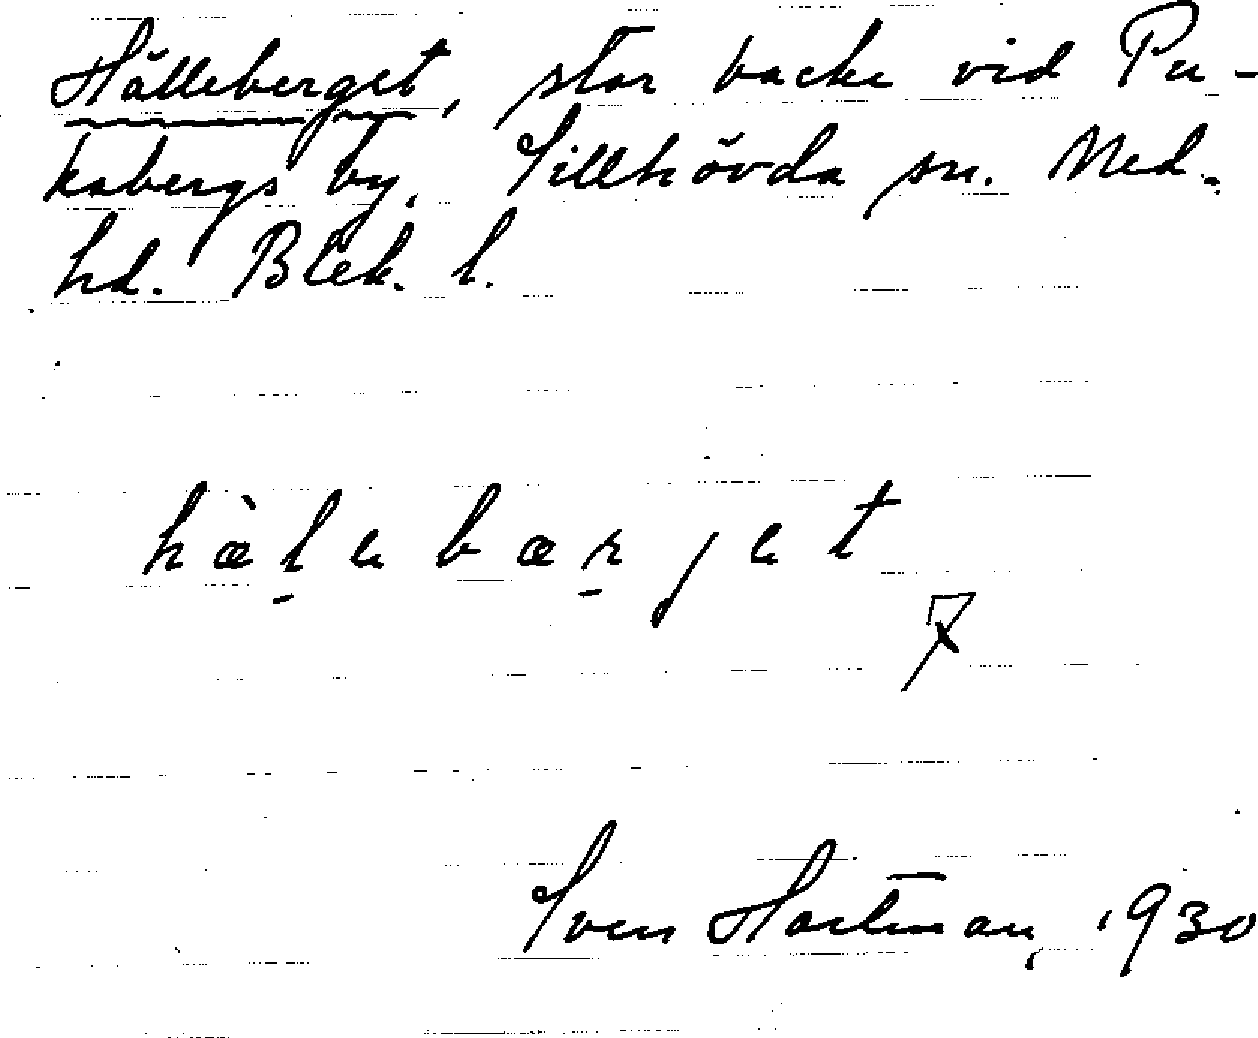 Hälleberget, stor backe vid Pu-
kabergs by. Sillhövda sn. Med.
hd. Blek. l.
hæ̀l̠ebær̠jet
Sven Hartman, 1930